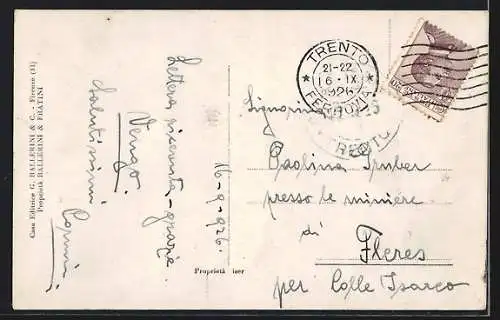 Casa Editrice G. BALLERINI & C. - Firenze (11)
Proprietà BALLERINI & FRATINI
Lettera ricevuta - grazie.
Vengo.
Salutissimi
16-9-926.
Proprietà
TRENTO
21-22
16·IX
1926
FERROVIA
TRENTO
Signorina
Paolina Gruber
presso le miniere
di
Fleres
per Colle Isarco